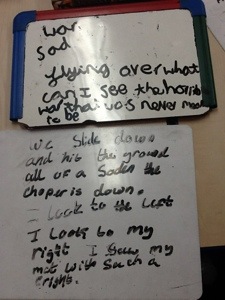 war
sad
flying over what
can I see the horrib
war that was never ment
to be
we slide down
and hit the ground
all of a Saden the
choper is down.
I look to the left
I look to my
right I Saw my
mat with Such a
fright.